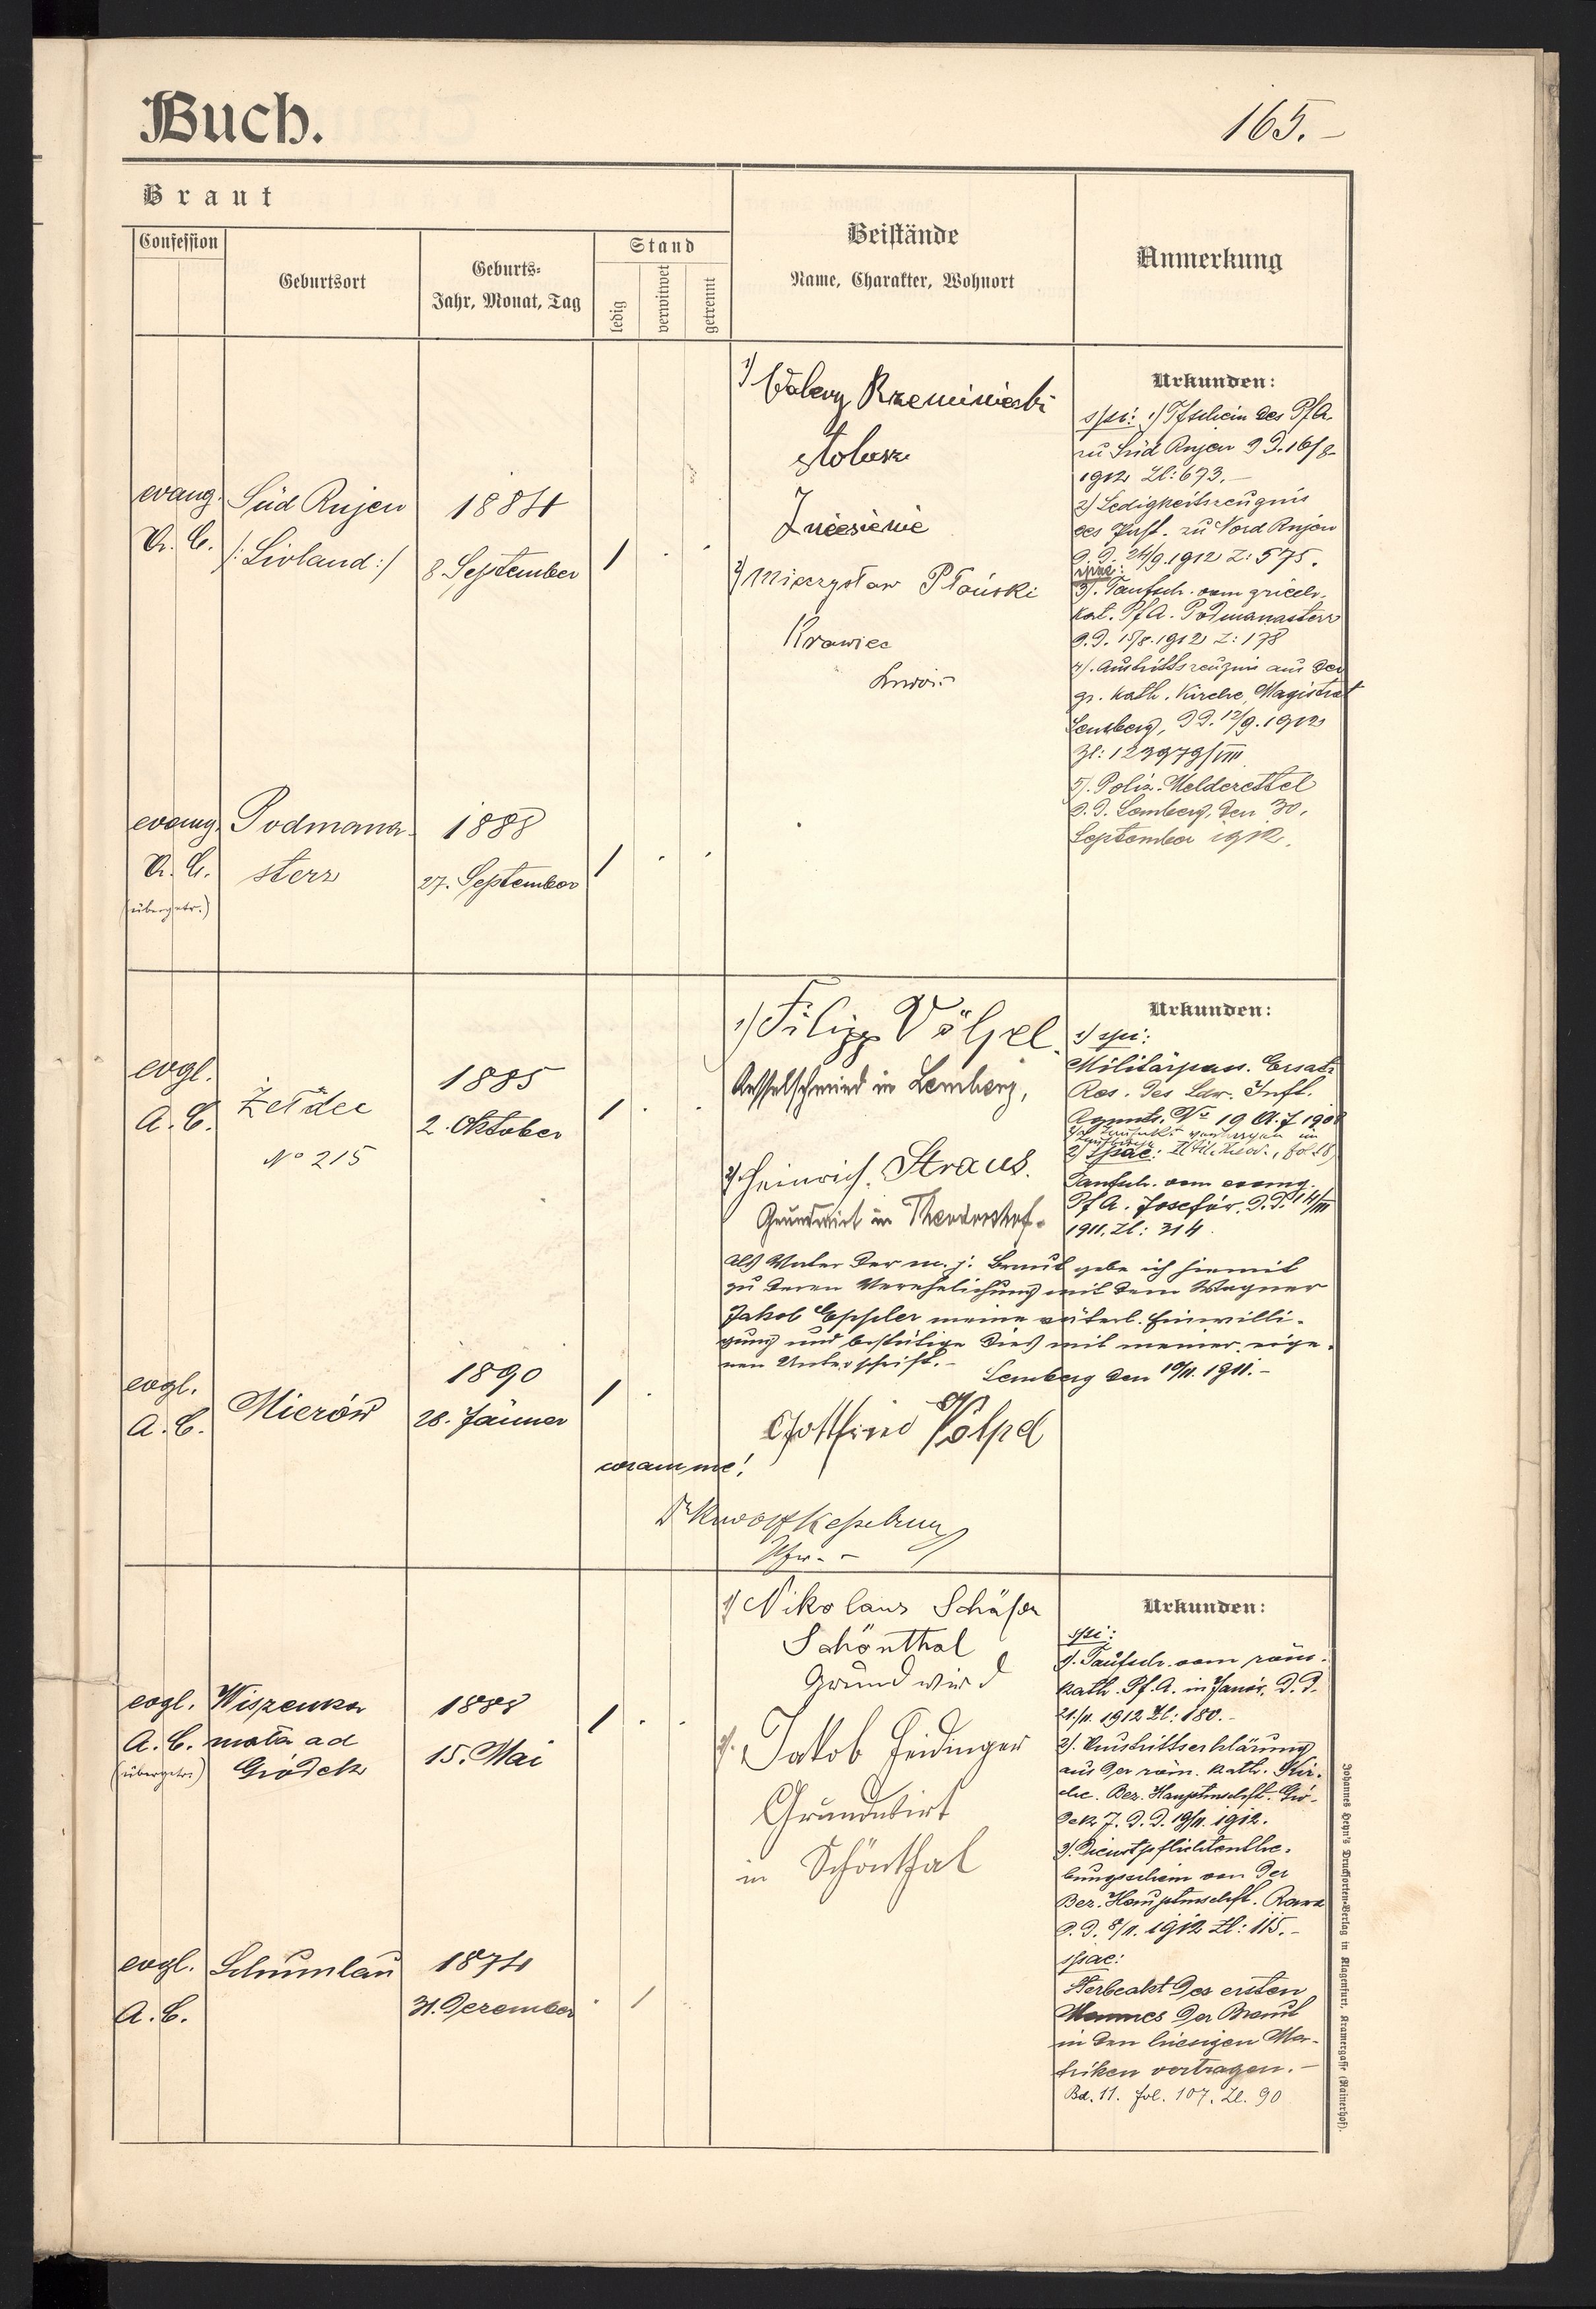 Buch.
165.-
Braut
Confession
Geburtsort
Geburts-
Jahr, Monat, Tag
Stand
ledig
verwitwet
getrennt
Beistände
Name, Charakter, Wohnort
Anmerkung
evang.
A. C.
Süd Rujen
/: Livland :/
1884
8 September
1)
stolarz
Zniesienie
2) Mieczysław Płoński
Krawiec
Lwów
Urkunden:
spi: 1) Tfschein des PfA.
zu Süd Rujen d.d. 16/8
1912 Zl: 673.-
2) Ledigkeitszeugnis
des Past. zu Nord Rujen
d.d. 24/9.1912 Z: 575.
spae:
3). Taufsch. vom griech.
kat. PfA. Podmanasterz
d.d. 15/8.1912 Z: 178
4). Austrittszeugnis aus der
gr. kath. Kirche, Magistrat
Lemberg, d.d. 12/9.1912
Zl: 123979/VIII
5). Poliz. Meldezettel
d.d. Lemberg, den 30.
September 1912.
evang.
A. C.
(übergetr.)
Podmana-
sterz
1888
27. September
evgl.
A. C.
Żełdec
No 215
1885
2. Oktober
1) Filipp Völpel
Kesselschmied in Lemberg,
2) Heinrich Straus.
Grundwirt in Theodorshof.
Urkunden:
1) spi:
Militärpass. Ersatz
Res. des Ldw. Inft.
Rgmts. No 19 A. J 1908
2) spae:
Taufsch. vom evang.
PfA. Josefów. d.d. 14/III
1911. Zl: 314.
Als Vater der m. j. Braut gebe ich hiemit
zu deren Verehelichung mit dem Wagner
Jakob Eppler meine väterl. Einwilli-
gung und bestätige dies mit meiner eige-
nen Unterschrift.-
Lemberg den 10/11. 1911.-
evgl.
A. C.
Mierów
1890
28. Jänner
Gottfried Völpel
coram me!
Pfr.-
evgl.
A. C.
(übergetr.)
Wiszenka
mała ad
Gródek
1888
15. Mai
1) Nikolaus Schäfer
Schönthal
Grundwird
2). Jakob Heidinger
Grundwirt
in Schönthal
Urkunden:
spi:
1). Taufsch. vom röm.
kath. Pf. A. in Janów. d.d.
21./11. 1912 Zl: 180.-
2). Austrittserklärung
aus der röm. kath. Kir-
che. Bez. Hauptmschft. Gró-
dek J. d.d. 19/11. 1912.
3). Dienstpflichtenthe-
bungsschein von der
Bez. Hauptmschft. Rawa
d.d. 8/11. 1912 Zl: 115.-
spae:
Sterbeakt des ersten
Mannes der Braut
in den hiesigen Ma-
triken vertragen.-
Bd. 11. fol. 107. Zl. 90
evgl.
A. C.
Schumlau
1874
31. Dezember
Johannes Heyn's Drucksorten-Verlag in Klagenfurt, Kramergasse (Rainerhof).